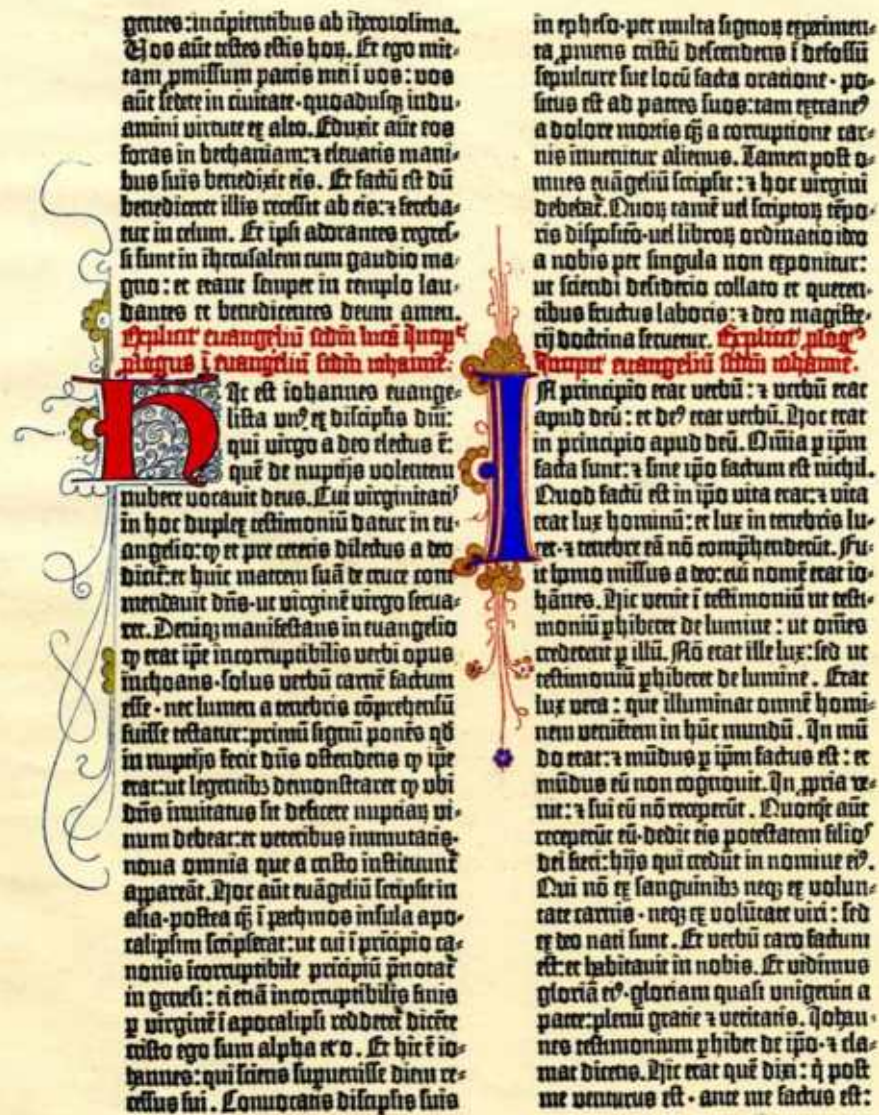 gentes: incipientibus ab iherosolima.
Vos aūt testes estis hoꝝ. Et ego mit⸗
tam ꝓmissum patris mei ī vos: vos
aūt sedete in civitate·quoadusqꝫ indu⸗
amini virtute ex alto. Eduxit aūt eos
foras in bethaniam: ⁊ elevatis mani⸗
bus suis benedixit eis. Et factū est dū
benediceret illis recessit ab eis: ⁊ fereba⸗
tur in celum. Et ipsi adorantes regres⸗
si sunt in iherusalem cum gaudio ma⸗
gno: et erant semper in templo lau⸗
dantes et benedicentes deum amen.
Explicit euangeliū scdm̄ lucā Incipꝰ
ꝓlogus ī euangeliū scdm̄ iohannē:
Hic est iohannes euange⸗
lista unꝰ ex discipulis dn̄i:
qui virgo a deo electus ē:
quē de nuptijs volentem
nubere vocavit deus. Cui virginitatꝭ
in hoc duplex testimoniū datur in eu⸗
angelio: ꝙ et pre ceteris dilectus a deo
dicit̄: et huic matrem suā de cruce com
mendavit dn̄s·ut virginē virgo serva⸗
ret. Deniqꝫ manifestans in euangelio
ꝙ erat ip̄e incorruptibilis verbi opus
inchoans·solus verbū carnē factum
esse·nec lumen a tenebris cōprehensū
fuisse testatur: primū signū ponēs qd̄
in nuptijs fecit dn̄s ostendens ꝙ ip̄e
erat: ut legentibꝫ demonstraret ꝙ ubi
dn̄s invitatus sit deficere nuptiaꝝ vi⸗
num debeat: et veteribus immutatis·
nova omnia que a cristo instituunt̄
appareāt. Hoc aūt euāgeliū scripsit in
asia·postea qͣ̄ ī pathmos insula apo⸗
calipsim scripserat: ut cui ī pricīpio ca⸗
nonis īcorruptibile pricīpiū p̄notat̄
in genesi: ei etiā incorruptibilis finis
ꝑ virginē ī apocalipsi redderet̄ dicēte
cristo ego sum alpha et o. Et hic ē io⸗
hannes: qui sciens supervenisse diem re⸗
cessus sui. Convocatis discipulis suis
in epheso·per multa signoꝝ experimen⸗
ta ꝓmens cristū descendens ī defossū
sepulture sue locū facta oratione·po⸗
situs est ad patres suos: tam extraneꝰ
a dolore mortis qͣ̄ a corruptione car⸗
nis invenitur alienus. Tamen post o⸗
mnes euāgeliū scripsit: ⁊ hoc virgini
debebat̄. Quoꝝ tamē vel scriptoꝝ tēpo⸗
ris dispositō·vel libroꝝ ordinatio ideo
a nobis per singula non exponitur:
ut sciendi desiderio collato et queren⸗
tibus fructus laboris: ⁊ deo magiste⸗
rij doctrina servetur. Explicit ꝓlogꝰ
Incipit euangeliū scdm̄ iohannē.
In principio erat verbū: ⁊ verbū erat
apud deū: et deꝰ erat verbū. Hoc erat
in principio apud deū. Om̄ia ꝑ ip̄m
facta sunt: ⁊ sine ip̄o factum est nichil.
Quod factū est in ip̄o vita erat: ⁊ vita
erat lux hominū: et lux in tenebris lu⸗
cet·⁊ tenebre eā nō comp̄henderūt. Fu⸗
it homo missus a deo: cui nomē erat io⸗
hānes. Hic venit ī testimoniū ut testi⸗
moniū ꝑhiberet de lumine: ut om̄es
crederent ꝑ illū. Nō erat ille lux: sed ut
testimoniū ꝑhiberet de lumine. Erat
lux vera: que illuminat omnē homi⸗
nem venientem in hūc mundū. In mū
do erat: ⁊ mūdus ꝑ ip̄m factus est: et
mūdus eū non cognovit. In ꝓpria ve⸗
nit: ⁊ sui eū nō receperūt. Quotqͦt aūt
receperūt eū·dedit eis potestatem filioꝭ
dei fieri: hijs qui credūt in nomine eiꝰ.
Qui nō ex sanguinibꝫ neqꝫ ex volun⸗
tate carnis·neqꝫ ex volūtate viri: sed
ex deo nati sunt. Et verbū caro factum
est: et habitavit in nobis. Et vidimus
gloriā eiꝰ·gloriam quasi unigeniti a
patre: plenū gratie ⁊ veritatis. Iohan⸗
nes testimonium ꝑhibet de ip̄o·⁊ cla⸗
mat dicens. Hic erat quē dixi: q̄ post
me venturus est·ante me factus est: